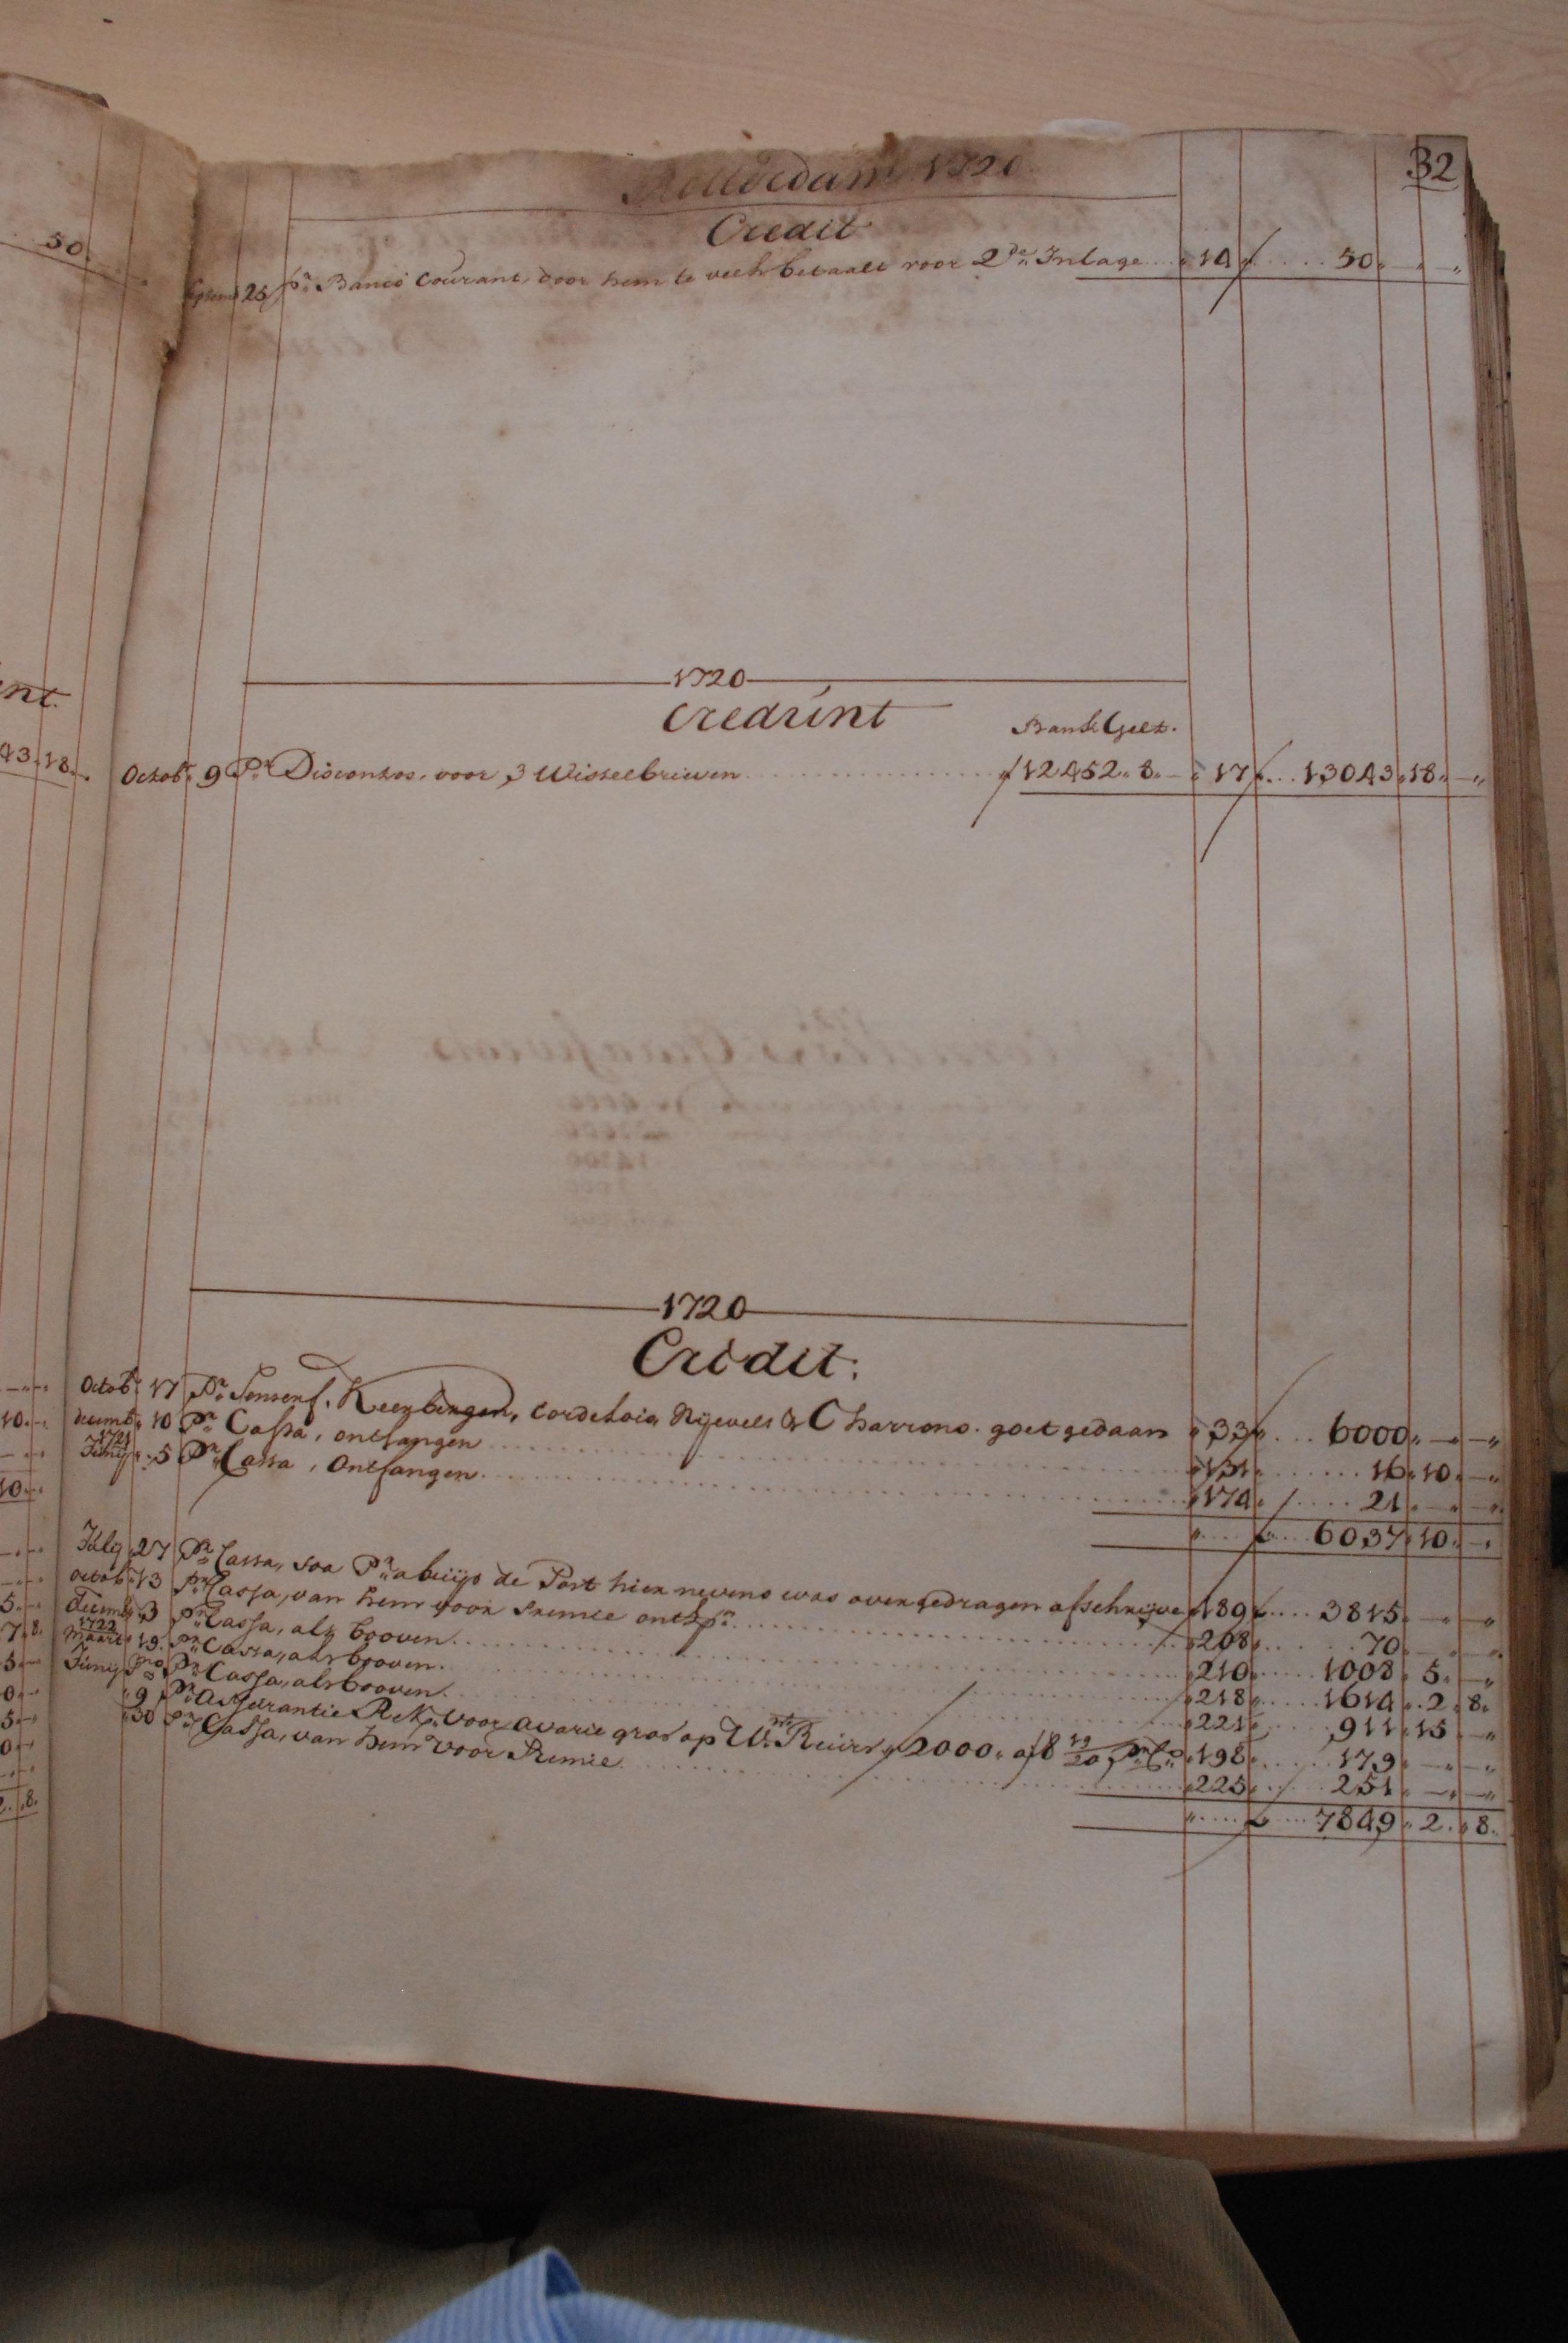 50.
Rotterdam 1720.
32
Credit
Septemb 25 Pr. Banco Courant, door hem te veel betaalt voor 2de Inlage 14 50
1720
Credunt
Bank Gelt.
43. 18.
Octobr. 9 Pr. Disconto, voor 3 Wisselbrieven f 12452. 8. 17 13043 18
1720
Credit:
Octobr. 17 Pr. Sensenf. Keerbergen, Cordelois, Nijevelt & Charrons. goet gedaan 33 6000
decemb. 10 Pr. Cassa, ontfangen 131 16 10
1721
Junij 5 Pr. Cassa, Ontfangen 174 21
6037 10
July 27 Pr. Cassa, soo Pr. abuijs de Post hier nevens was overgedragen afschrijve 189 3815
Octob. 13 Pr. Cassa, van hem voor Premie ontf. 208 70
Decemb. 3 Pr. Cassa, als booven 210 1008 5
1722
Maart 19 Pr. Cassa, als booven 218 1614 2 8
Junij Pmo Pr. Cassa, als booven 221 911 15
9 Pr. Assurantie Rek. voor avarie gros op f 2000 a f 8 19/20 Pr. Co. 198 179
30 Pr. Cassa, van hem voor Premie 225 251
7849 2 8